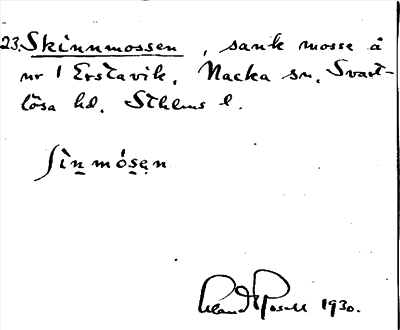 23. Skinnmossen, sank mosse å
nr 1 Erstavik, Nacka sn, Svart-
lösa hd. Sthlms l.
ʃìn̲mósẹn
1930.